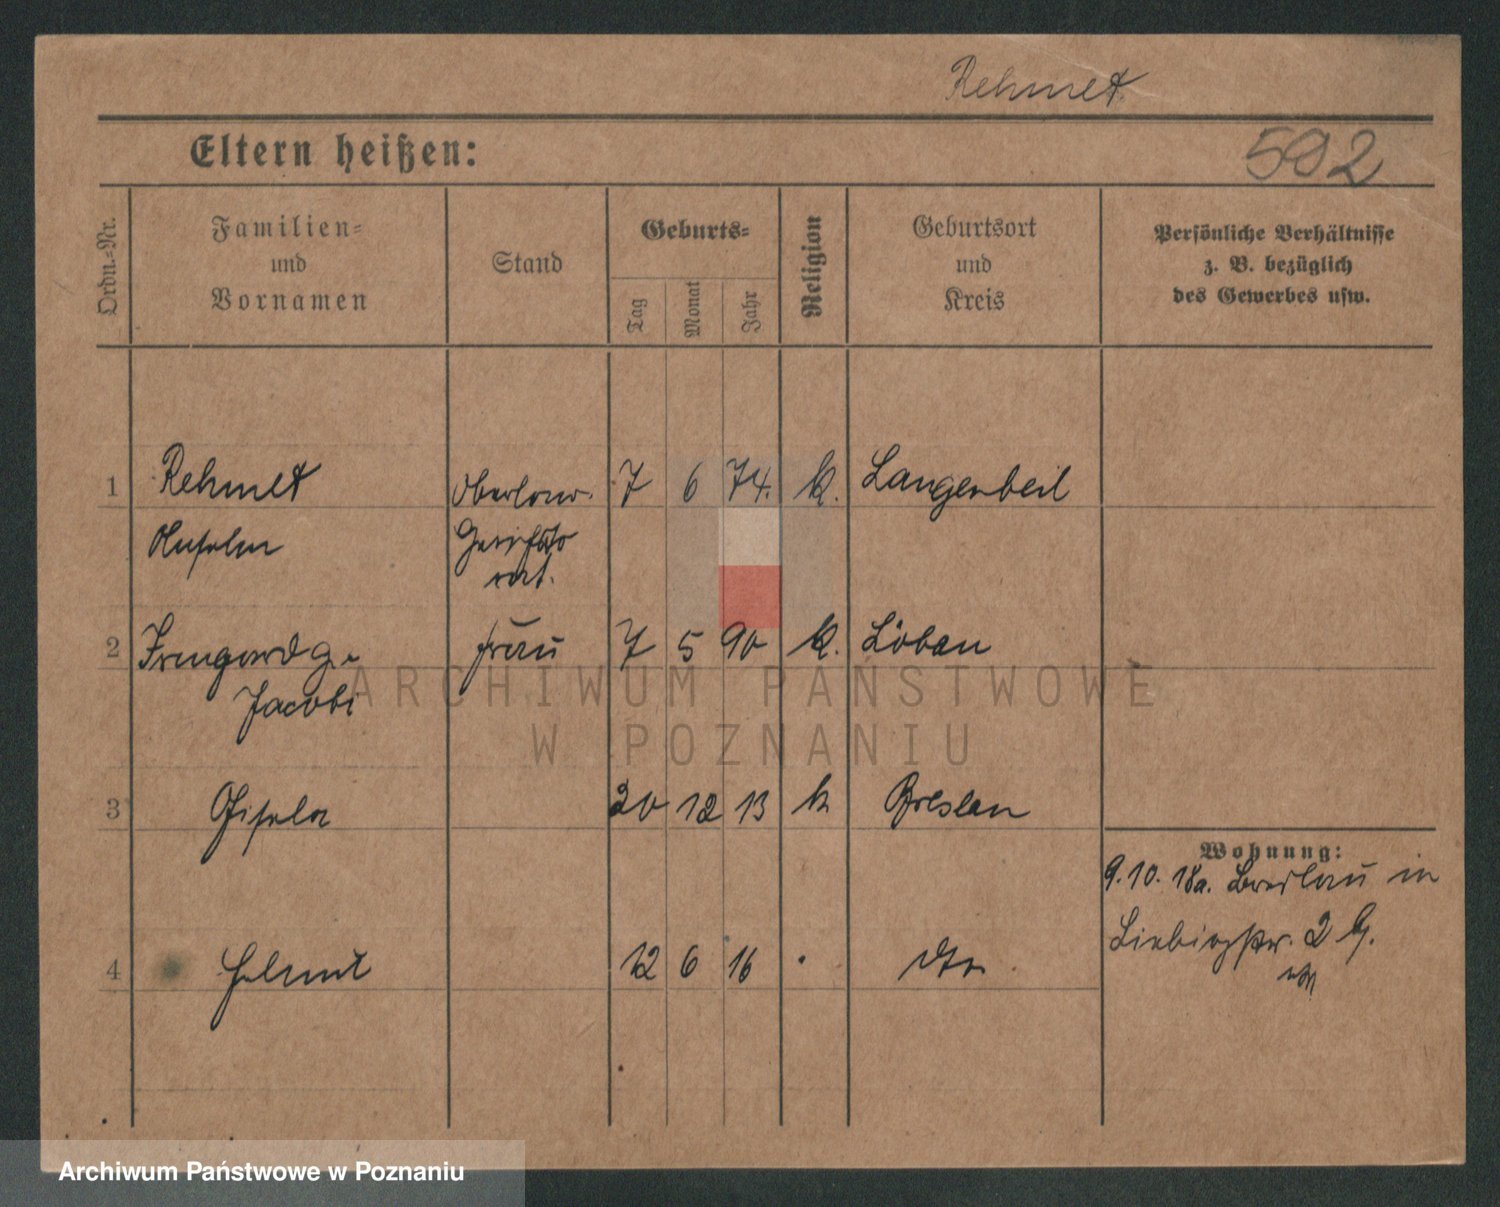 Rehmet
Eltern heißen:
592
Ordn.-Nr.
Familien-
und
Vornamen
Stand
Geburts-
Tag
Monat
Jahr
Religion
Geburtsort
und
Kreis
Persönliche Verhältnisse
z. B. bezüglich
des Gewerbes usw.
1 Rehmet 7 6 74. k. Langenbeil
2 Irmgard g. Frau 7 5 90 k. Löbau
Jacobi
3 Gisela 20 12 13 k Breslau
4 Helmut 12 6 16 dto
Wohnung:
9.10.18 a. Breslau in
Liebigstr. 2
ARCHIWUM PAŃSTWOWE
W POZNANIU
Archiwum Państwowe w Poznaniu